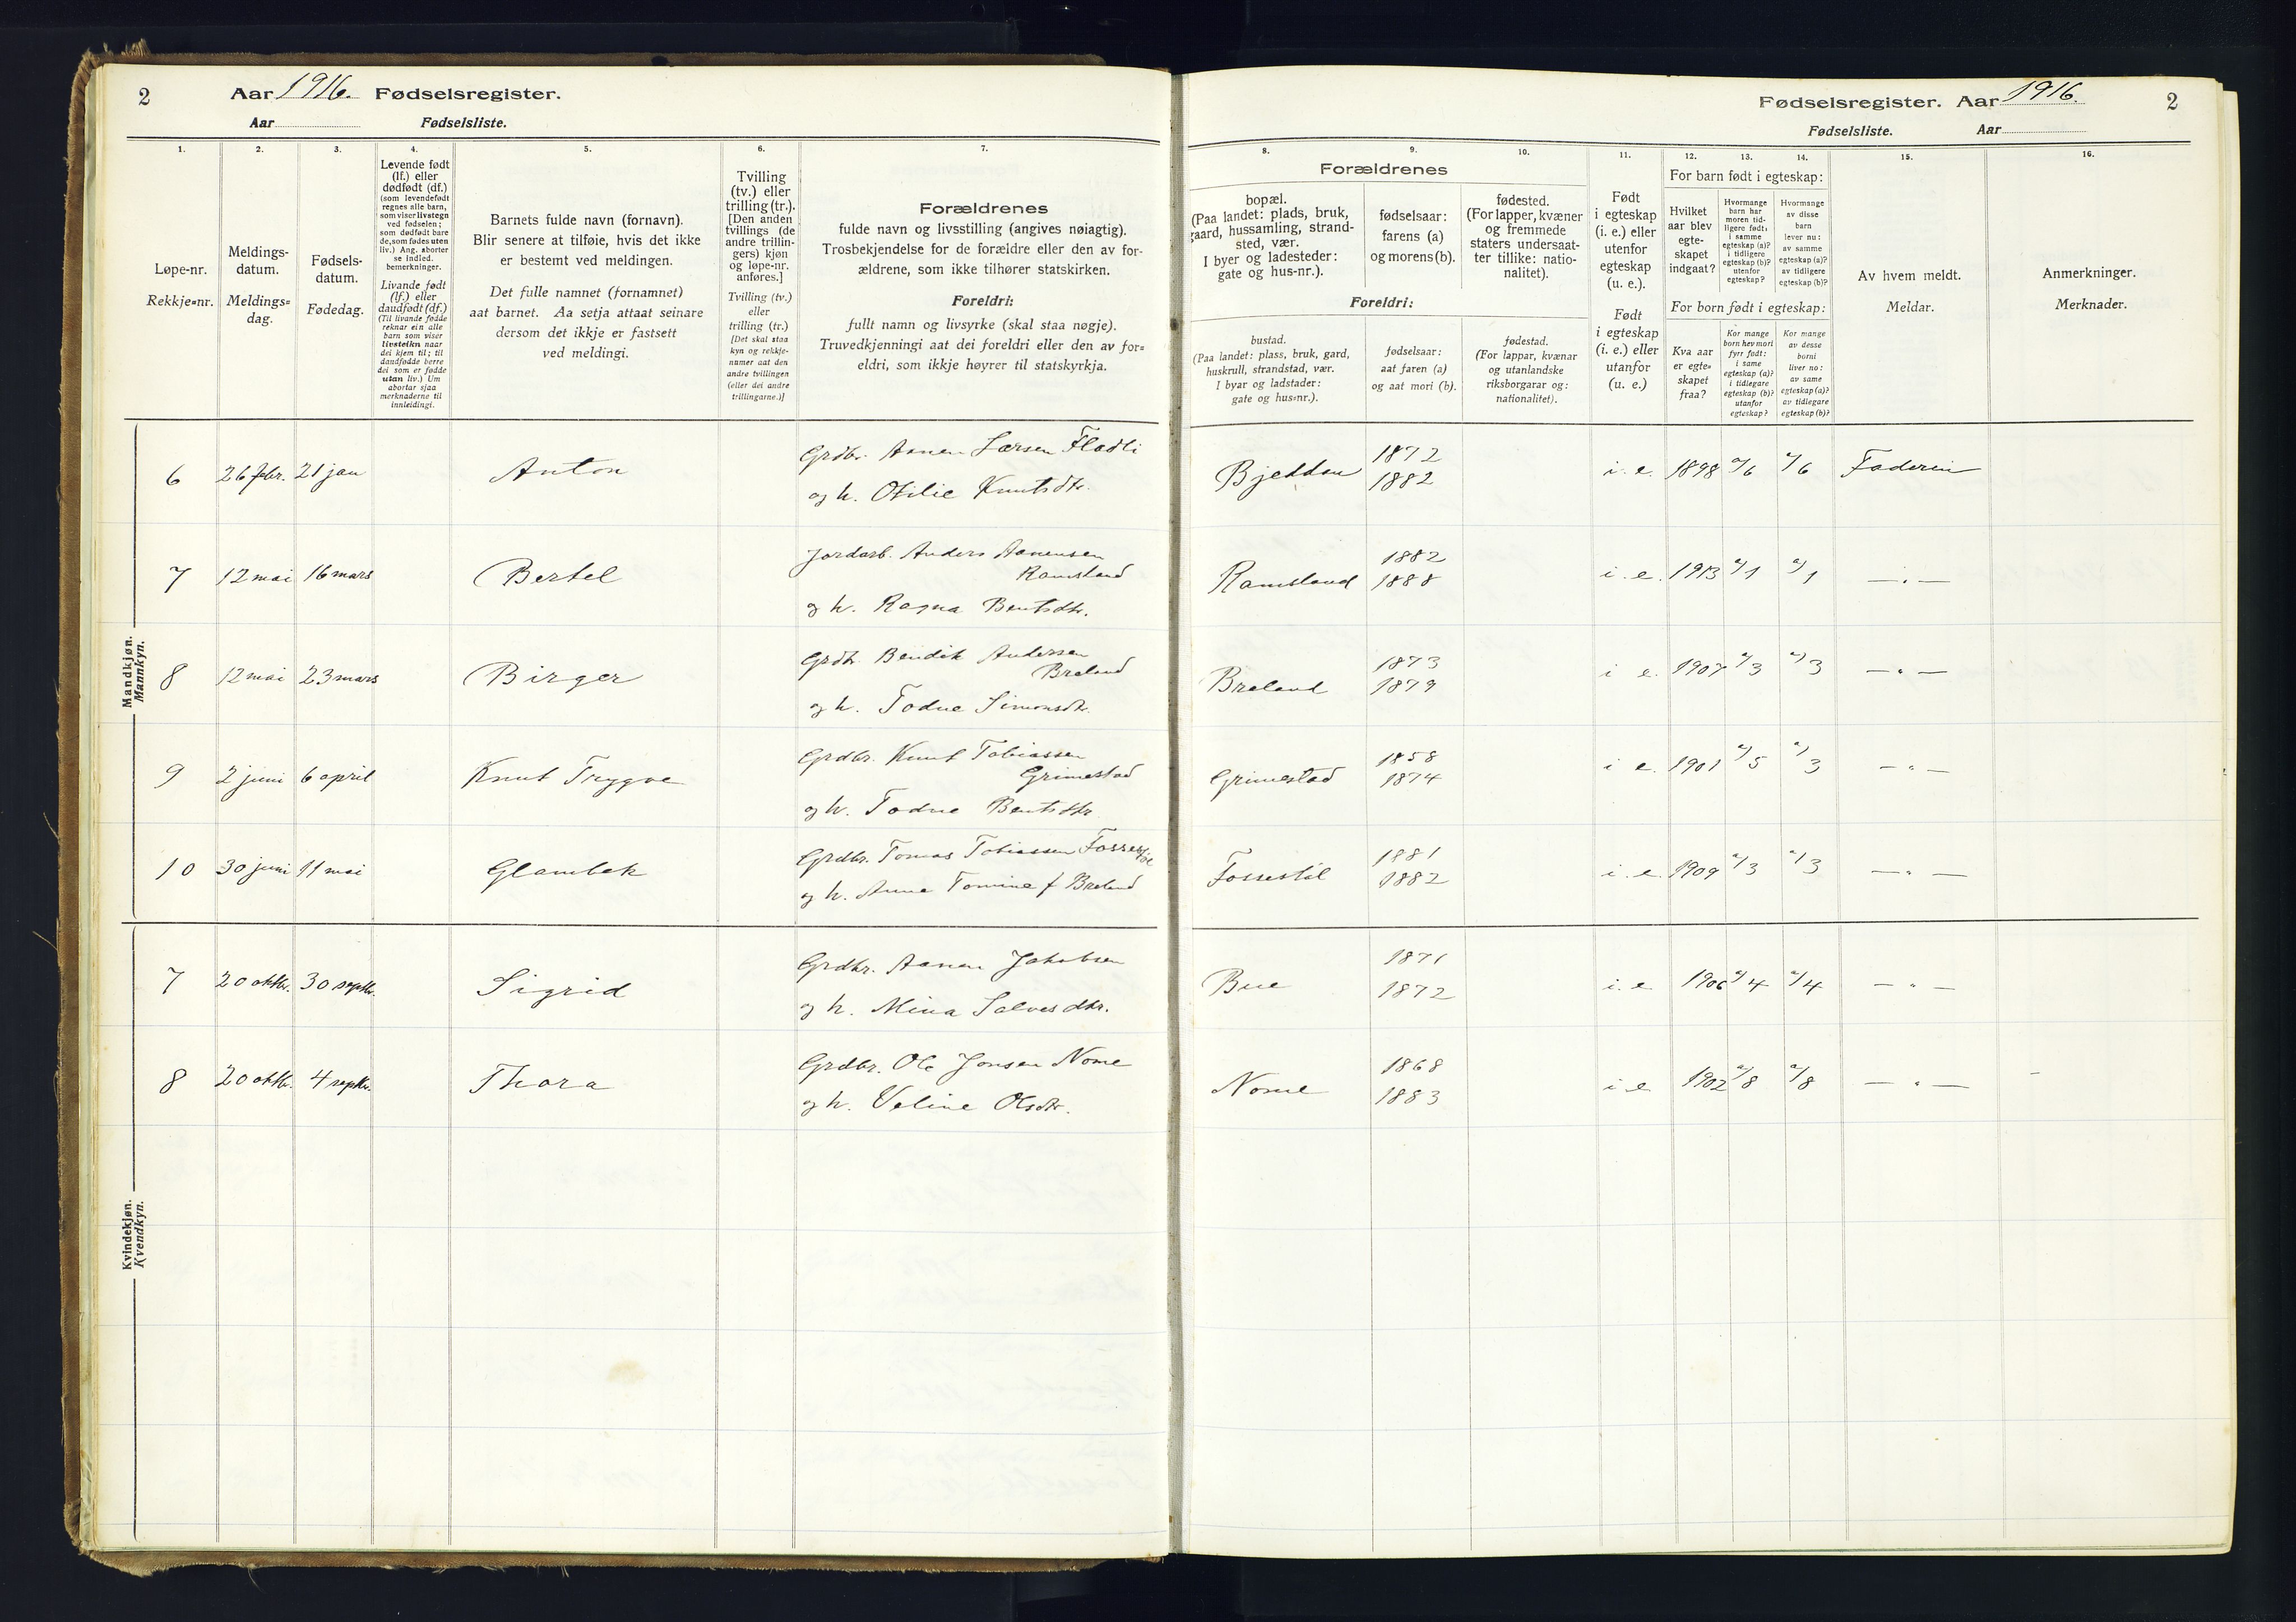 2 Aar 1916. Fødselsregister.
Aar Fødselsliste.
1.
Løpe-nr.
Rekkje=nr.
2.
Meldings-
datum.
Meldings=
dag.
3.
Fødsels-
datum.
Fødedag.
4.
Levende født
(lf.) eller
dødfødt (df.)
(som levendefødt
regnes alle barn,
som viser livstegn
ved fødselen;
som dødfødt bare
de, som fødes uten
liv.) Ang. aborter
se indled.
bemerkninger.
Livande født
(lf.) eller
daudfødt (df.)
(Til livande fødde
reknar ein alle
barn som viser
livsteikn naar
dei kjem til; til
daudfødde berre
dei som er fødde
utan liv.) Um
abortar sjaa
merknaderne til
innleidingi.
5.
Barnets fulde navn (fornavn).
Blir senere at tilføie, hvis det ikke
er bestemt ved meldingen.
Det fulle namnet (fornamnet)
aat barnet. Aa setja attaat seinare
dersom det ikkje er fastsett
ved meldingi.
6.
Tvilling
(tv.) eller
trilling (tr.).
[Den anden
tvillings (de
andre trillin-
gers) kjøn
og løpe-nr.
anføres.]
Tvilling (tv.)
eller
trilling (tr.)
[Det skal staa
kyn og rekkje-
numer aat den
andre tvillingen
(eller dei andre
trillingarne.)]
7.
Forældrenes
fulde navn og livsstilling (angives nøiagtig).
Trosbekjendelse for de forældre eller den av for-
ældrene, som ikke tilhører statskirken.
Foreldri:
fullt namn og livsyrke (skal staa nøgje).
Truvedkjenningi aat dei foreldri eller den av for=
eldri, som ikkje høyrer til statskyrkja.
Mandkjøn.
Mannkyn.
6 26 febr. 21 jan Anton Grdbr. Aanen Larsen Fladli
og h. Otilie Knutsdtr.
7 12 mai 16 mars Bertel Jordarb. Anders Aanensen
Ramsland
og h. Ragna Bentsdtr.
8 12 mai 23 mars Birger Grdbr. Bendik Andersen
Breland
og h. Todne Simonsdtr.
9 2 juni 6 april Knut Trygve Grdbr. Knut Tobiassen
Grimestad
og h. Todne Bentsdtr.
10 30 juni 11 mai Glambek Grdbr. Tomas Tobiassen Fossestøl
og h. Anne Tomine f Breland
Kvindekjøn.
Kvendkyn.
7 20 oktbr. 30 septbr. Sigrid Grdbr. Aanen Jakobsen
og h. Mina Salvesdtr.
8 20 oktbr. 4 septbr. Thora Grdbr. Ole Jonsen Nome
og h. Veline Olsdtr.
Fødselsregister. Aar 1916. 2
Fødselsliste. Aar
Forældrenes
8.
bopæl.
(Paa landet: plads, bruk,
gaard, hussamling, strand-
sted, vær.
I byer og ladesteder:
gate og hus-nr.).
9.
fødselsaar:
farens (a)
og morens (b).
10.
fødested.
(For lapper, kvæner
og fremmede
staters undersaat-
ter tillike: natio-
nalitet).
Foreldri:
bustad.
(Paa landet: plass, bruk, gard,
huskrull, strandstad, vær.
I byar og ladstader:
gate og hus=nr.).
fødselsaar:
aat faren (a)
og aat mori (b).
fødestad.
(For lappar, kvænar
og utanlandske
riksborgarar og:
nationalitet).
11.
Født
i egteskap
(i. e.) eller
utenfor
egteskap
(u. e.).
Født
i egteskap
(i. e.) eller
utanfor
(u. e.)
For barn født i egteskap:
12.
Hvilket
aar blev
egte-
skapet
indgaat?
13.
Hvormange
barn har
moren tid-
ligere født:
i samme
egteskap (a)?
i tidligere
egteskap (b)?
utenfor
egteskap?
14.
Hvormange
av disse
barn
lever nu:
av samme
egteskap (a)?
av tidligere
egteskap (b)?
For born født i egteskap:
Kva aar
er egte=
skapet
fraa?
Kor mange
born hev mori
fyrr født:
i same
egteskap (a)?
i tidlegare
egteskap (b)?
utanfor
egteskap?
Kor mange
av desse
borni
liver no:
av same
egteskap (a)?
av tidlegare
egteskap (b)?
15.
Av hvem meldt.
Meldar.
16.
Anmerkninger.
Merknader.
Bjelldan 1872
1882 i. e. 1898 a/6 a/6 Faderen
Ramsland 1882
1888 i. e. 1913 a/1 a/1 — " —
Breland 1873
1879 i e. 1907 a/3 a/3 — " —
Grimestad 1858
1874 i e. 1901 a/5 a/3 — " —
Fossestøl 1881
1882 i. e. 1909 a/3 a/3 — " —
Bue 1871
1872 i. e 1906 a/4 a/4 — " —
Nome 1868
1883 i e 1902 a/8 a/8 — " —